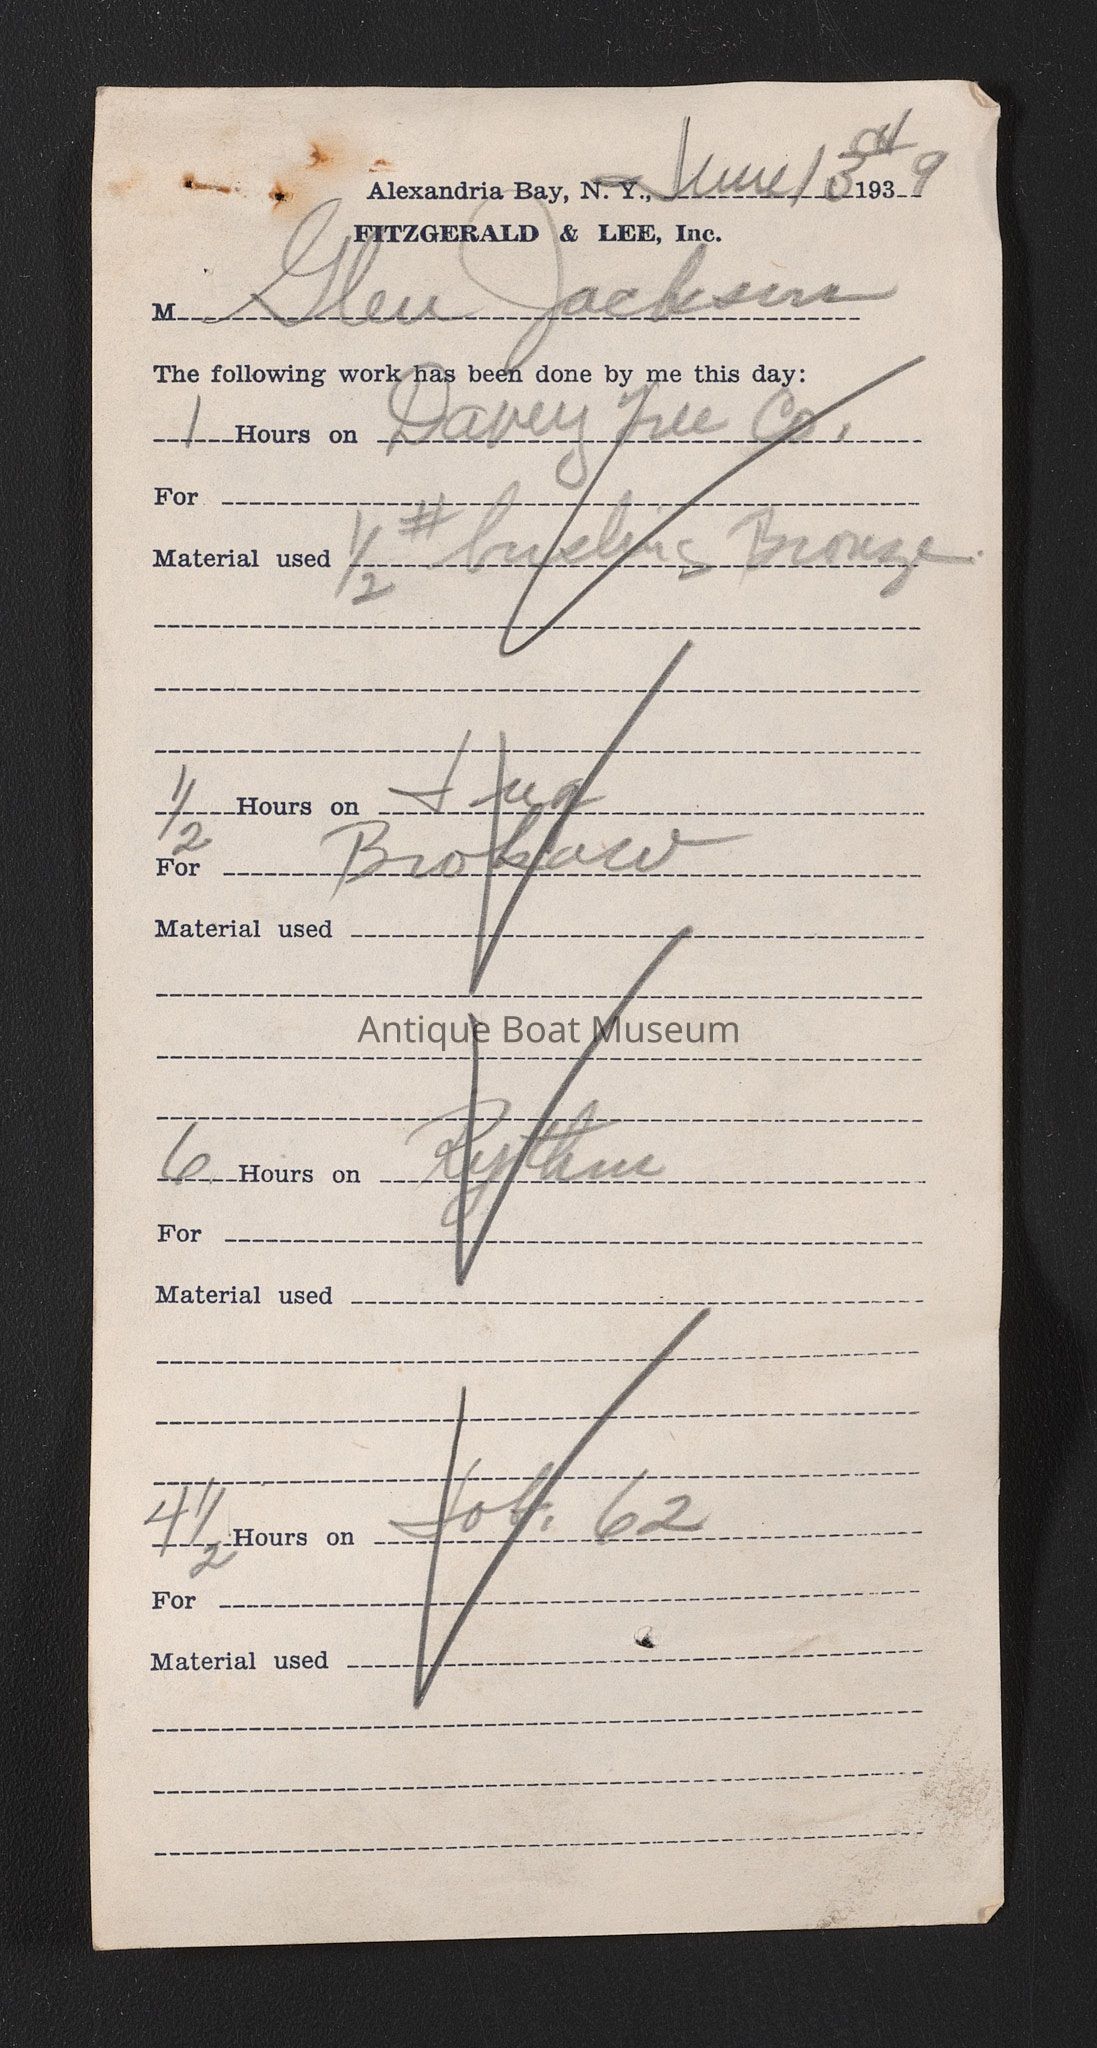 Alexandria Bay, N. Y., June 13 193 9
FITZGERALD & LEE, Inc.
M Glen Jackson
The following work has been done by me this day:
1 Hours on Davey Tree Co.
For
Material used 1/2 # bushing Bronze.
1/2 Hours on Ina
For Brokaw
Material used
Antique Boat Museum
6 Hours on Rythm
For
Material used
4 1/2 Hours on Job. 62
For
Material used